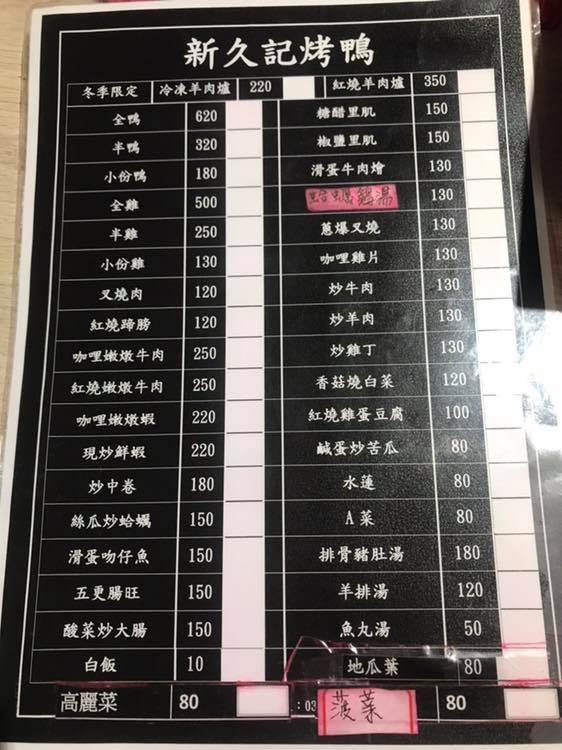 新久記烤鴨
冬季限定 冷凍羊肉爐 220 紅燒羊肉爐 350
全鴨 620 糖醋里肌 150
半鴨 320 椒鹽里肌 150
小份鴨 180 滑蛋牛肉燴 130
全雞 500 湯 130
半雞 250 蔥爆叉燒 130
小份雞 130 咖哩雞片 130
叉燒肉 120 炒牛肉 130
紅燒蹄膀 120 炒羊肉 130
咖哩嫩燉牛肉 250 炒雞丁 130
紅燒嫩燉牛肉 250 香菇燒白菜 120
咖哩嫩燉蝦 220 紅燒雞蛋豆腐 100
現炒鮮蝦 220 鹹蛋炒苦瓜 80
炒中卷 180 水蓮 80
絲瓜炒蛤蠣 150 A菜 80
滑蛋吻仔魚 150 排骨豬肚湯 180
五更腸旺 150 羊排湯 120
酸菜炒大腸 150 魚丸湯 50
白飯 10 地瓜葉 80
高麗菜 80 : 03 菠菜 80